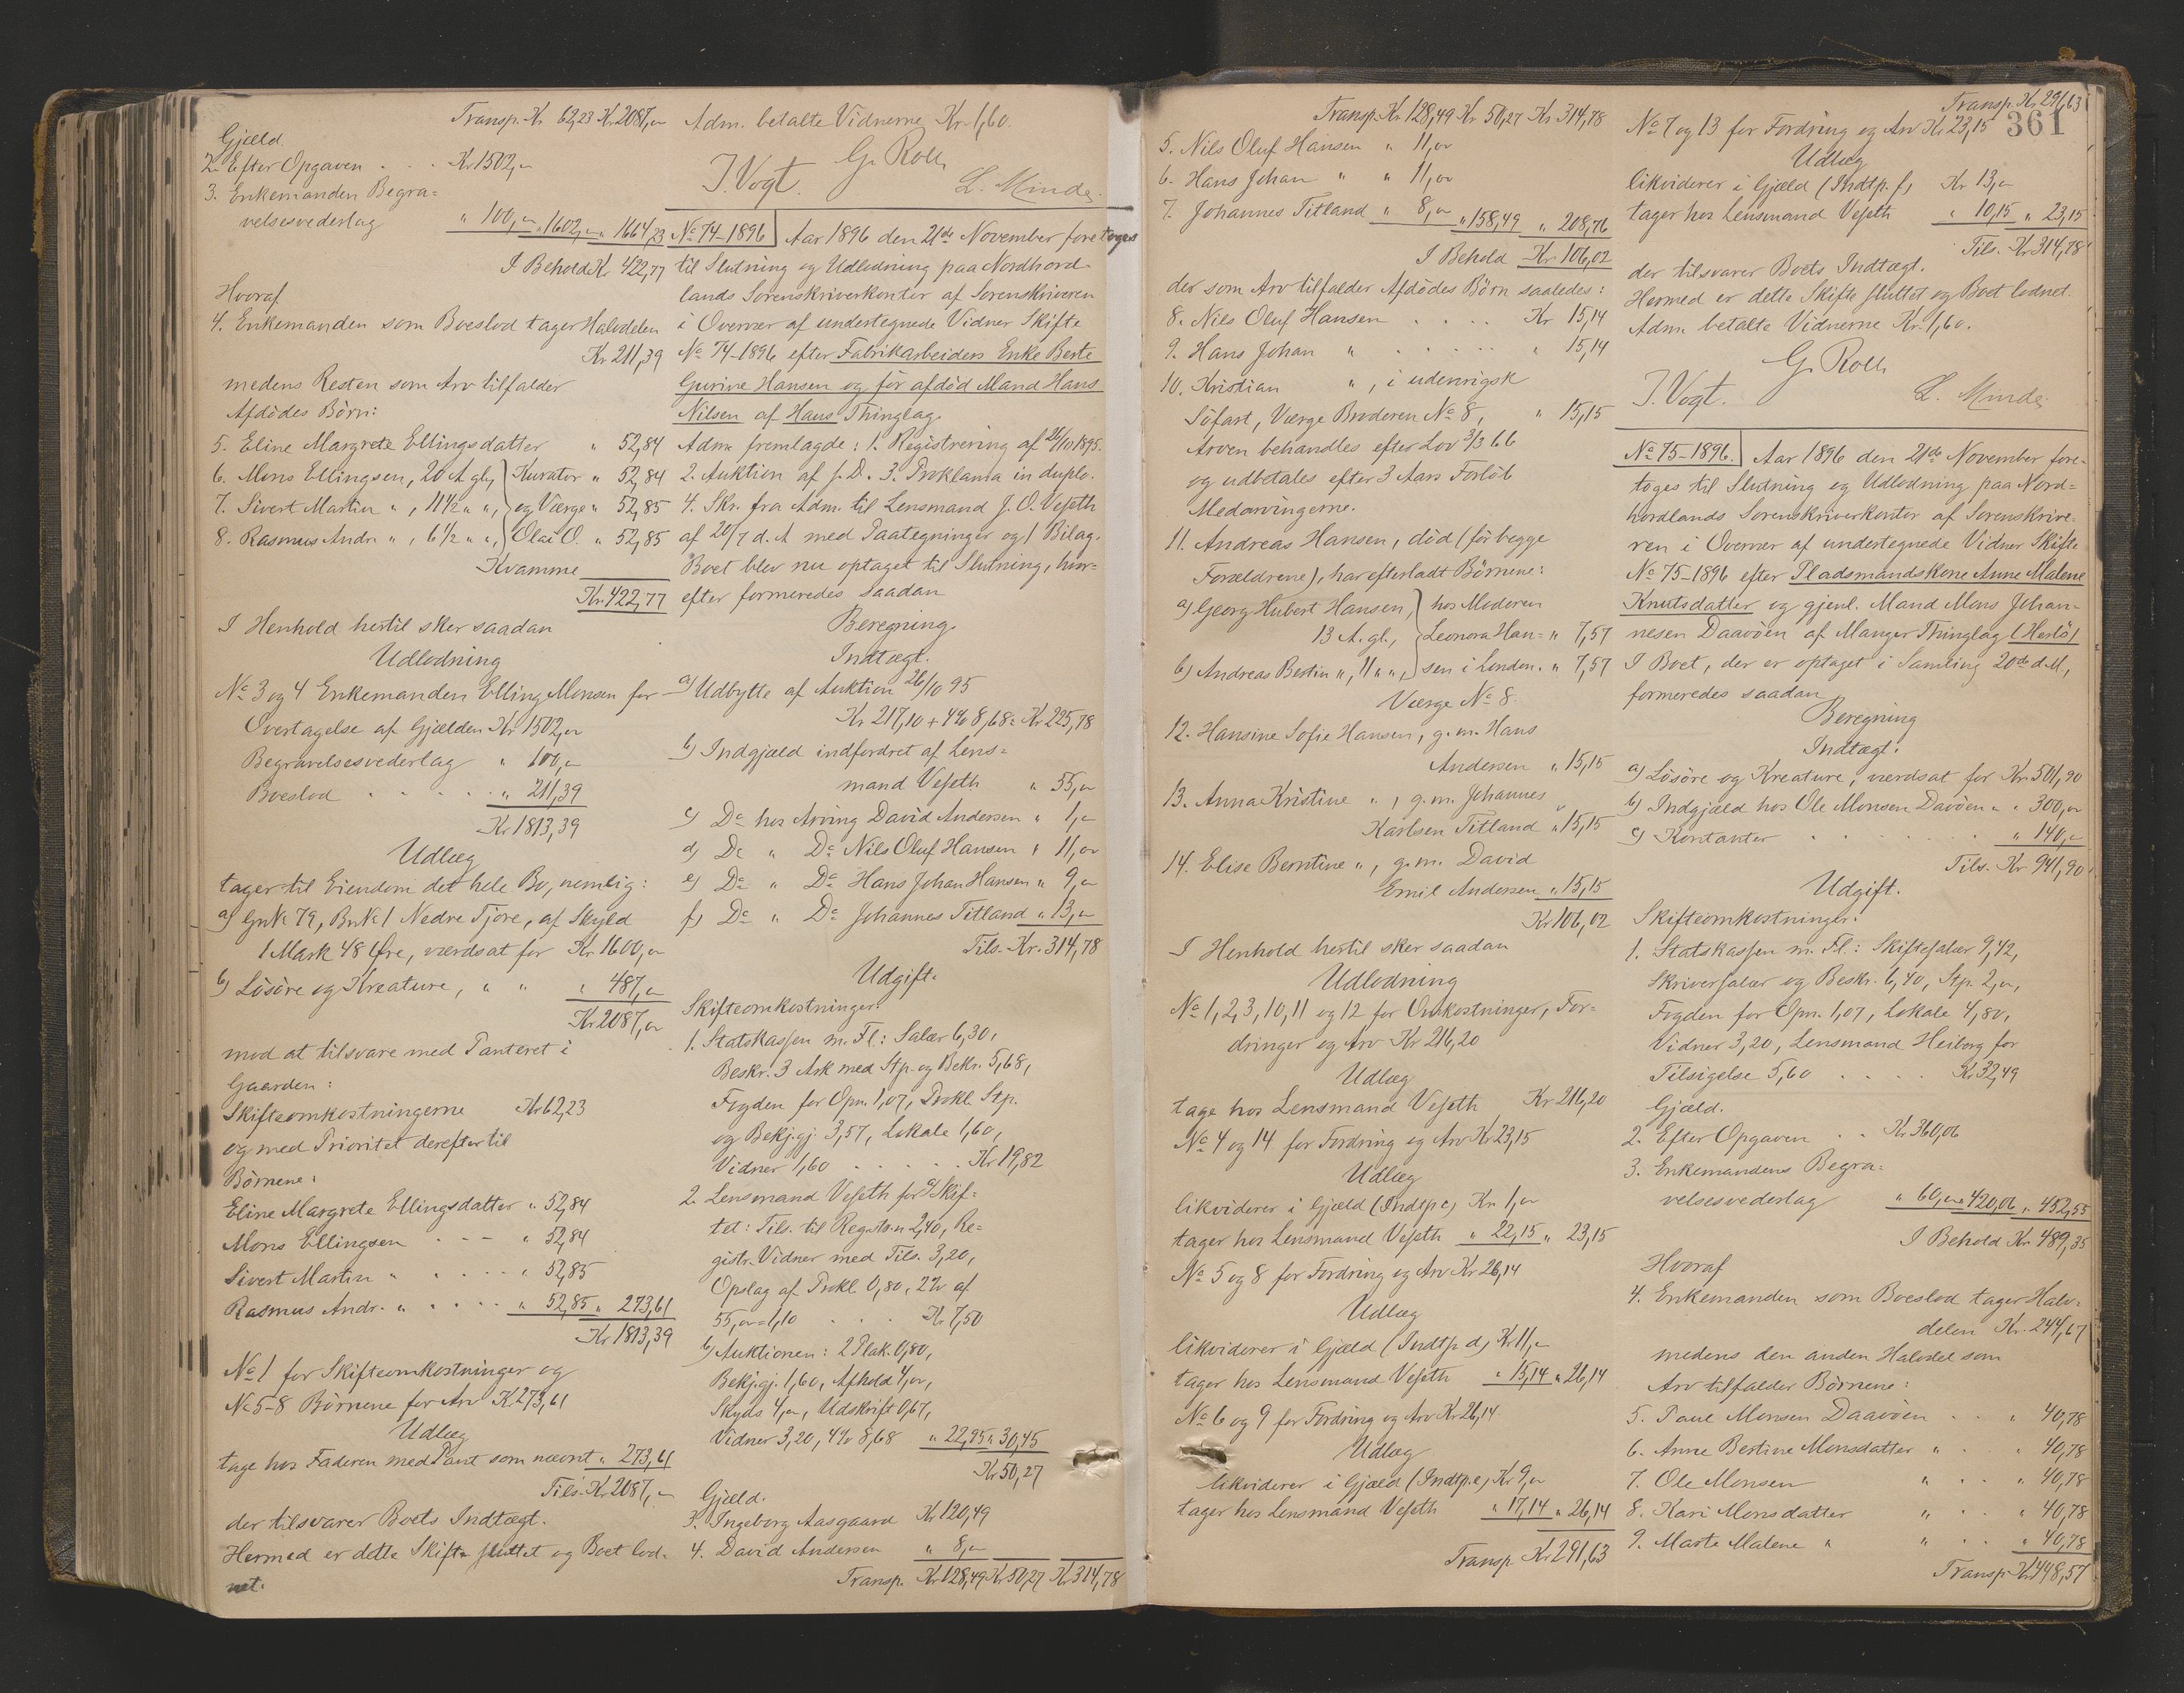 Transp. Kr 62,23 Kr 2087,00
Gjæld.
2. Efter Opgaven . . . Kr 1502,00
3. Enkemanden Begra=
velsesvederlag " 100,00 " 1602,00 " 1664,23
I Behold Kr 422,77
Hvoraf
4. Enkemanden som Boeslod tager Halvdelen
Kr 211,39
medens Resten som Arv tilfalder
Afdødes Børn:
5. Eline Margrete Ellingsdatter " 52,84
6. Mons Ellingsen, 20 A. gl., Kurator " 52,84
7. Sivert Martin ", 11 1/2 " ", og Værge " 52,85
8. Rasmus Andr. ", 6 1/2 " ", Olai O. " 52,85
Kvamme
Kr 422,77
I Henhold hertil sker saadan
Udlodning
No 3 og 4 Enkemanden Elling Monsen for
Overtagelse af Gjælden Kr 1502,00
Begravelsesvederlag " 100,00
Boeslod . . . . . " 211,39
Kr 1813,39
Udlæg
tager til Eiendom det hele Bo, nemlig:
a) GnNo 79, BnNo 1 Nedre Tjore, af Skyld
1 Mark 48 Øre, værdsat for Kr. 1600,00
b) Løsøre og Kreature, " " " 487,00
Kr 2087,00
mod at tilsvare med Panteret i
Gaarden:
Skifteomkostningerne Kr 62,23
og med Prioritet derefter til
Børnene:
Eline Margrete Ellingsdatter " 52,84
Mons Ellingsen - - - " 52,84
Sivert Martin " . . . . " 52,85
Rasmus Andr. " . . . . " 52,85 " 273,61
Kr 1813,39
No 1 for Skifteomkostninger og
No 5-8 Børnene for Arv Kr 273,61
Udlæg
tage hos Faderen med Pant som nævnt " 273,61
Tils. Kr 2087,00
der tilsvarer Boets Indtægt.
Hermed er dette Skifte sluttet og Boet lod=
net.
Adm. betalte Vidnerne Kr. 1,60.
G. Roll
J. Vogt. L. Minde.
No 74-1896 Aar 1896 den 21de November foretoges
til Slutning og Udlodning paa Nordhord-
lands Sorenskriverkontor af Sorenskriveren
i Overvær af undertegnede Vidner Skifte
No 74-1896 efter Fabrikarbeiders Enke Berte
Gurine Hansen og før afdød Mand Hans
Nilsen af Haus Thinglag.
Adm. fremlagde: 1. Registrering af 26/10 1895.
2. Auktion af s. D. 3. Proklama in duplo.
4. Skr. fra Adm. til Lensmand J. O. Veseth
af 20/7 d. A. med Paategninger og 1 Bilag.
Boet blev nu optaget til Slutning, hvor=
efter formeredes saadan
Beregning.
Indtægt.
a) Udbytte af Auktion 26/10 95
Kr 217,10 + 4% 8,68 = Kr 225,78
b) Indgjæld indfordret af Lens=
mand Veseth " 55,00
c) Do hos Arving David Andersen " 1,00
d) Do " Do Nils Oluf Hansen " 11,00
e) Do " Do Hans Johan Hansen " 9,00
f) Do " Do Johannes Titland " 13,00
Tils. Kr. 314,78
Udgift.
Skifteomkostninger.
1. Statskassen m. Fl: Salær 6,30,
Beskr. 3 Ark med Stp. og Bekr. 5,68,
Fogden for Opn. 1,07, Prokl. Stp.
og Bekj.gj. 3,57, Lokale 1,60,
Vidner 1,60 . . . . . Kr 19,82
2. Lensmand Veseth for a) Skif=
tet: Tils. til Reg. 2,40, Re=
gistr. Vidner med Tils. 3,20,
Opslag af Prokl. 0,80, 2% af
55,00 = 1,10 . . . Kr 7,50
b) Auktionen: 2 Plak. 0,80,
Bekj.gj. 1,60, Afhold 4,00,
Skyds 4,00, Udskrift 0,67,
Vidner 3,20, 4% 8,68 " 22,95 " 30,45
Kr 50,27
Gjæld.
3. Ingeborg Aasgaard Kr 120,49
4. David Andersen " 8,00
Transp. Kr 128,49 Kr 50,27 Kr 314,78
Transp. Kr 128,49 Kr 50,27 Kr 314,78
5. Nils Oluf Hansen " 11,00
6. Hans Johan " " 11,00
7. Johannes Titland " 8,00 " 158,49 " 208,76
I Behold Kr 106,02
der som Arv tilfalder Afdødes Børn saaledes:
8. Nils Oluf Hansen . . . . Kr 15,14
9. Hans Johan " . . . . . " 15,14
10. Kristian ", i udenrigsk
Søfart, Værge Broderen No 8, " 15,15
Arven behandles efter Lov 3/3 66
og udbetales efter 3 Aars Forløb
Medarvingerne.
11. Andreas Hansen, død (før begge
Forældrene), har efterladt Børnene:
a) Georg Hubert Hansen, hos Moderen
13 A. gl., Leonora Han= " 7,57
b) Andreas Bestin ", 11 " ", sen i London. " 7,57
Værge No 8.
12. Hansine Sofie Hansen, g. m. Hans
Andersen " 15,15
13. Anna Kristine ", g. m. Johannes
Karlsen Titland " 15,15
14. Elise Berntine ", g. m. David
Emil Andersen " 15,15
Kr 106,02
I Henhold hertil sker saadan
Udlodning
No 1, 2, 3, 10, 11 og 12 for Omkostninger, For=
dringer og Arv Kr 216,20
Udlæg
tage hos Lensmand Veseth Kr 216,20
No 4 og 14 for Fordring og Arv Kr 23,15
Udlæg
likviderer i Gjæld (Indtp c) Kr. 1,00
tager hos Lensmand Veseth " 22,15 " 23,15
No 5 og 8 for Fordring og Arv Kr 26,14
Udlæg
likviderer i Gjæld (Indtp d) Kr 11,00
tager hos Lensmand Veseth " 15,14 " 26,14
No 6 og 9 for Fordring og Arv Kr 26,14
Udlæg
likviderer i Gjæld (Indtp. e) Kr 9,00
tager hos Lensmand Veseth " 17,14 " 26,14
Transp. Kr 291,63
Transp. Kr 291,63
361
No 7 og 13 for Fordring og Arv Kr 23,15
Udlæg
likviderer i Gjæld (Indtp. f) Kr 13,00
tager hos Lensmand Veseth " 10,15 " 23,15
Tils. Kr 314,78
der tilsvarer Boets Indtægt.
Hermed er dette Skifte sluttet og Boet lodnet.
Adm. betalte Vidnerne Kr. 1,60.
G. Roll
J. Vogt. L. Minde.
No 75-1896. Aar 1896 den 21de November fore=
toges til Slutning og Udlodning paa Nord=
hordlands Sorenskriverkontor af Sorenskrive=
ren i Overvær af undertegnede Vidner Skifte
No 75-1896 efter Pladsmandskone Anne Malene
Knutsdatter og gjenl. Mand Mons Johan=
nesen Daavøen af Manger Thinglag (Herlø)
I Boet, der er optaget i Samling 20de d. M.,
formeredes saadan
Beregning
Indtægt.
a) Løsøre og Kreature, værdsat for Kr. 501,90
b) Indgjæld hos Ole Monsen Davøen " " 300,00
c) Kontanter . . . . . " 140,00
Tils. Kr 941,90
Udgift.
Skifteomkostninger.
1. Statskassen m. Fl.: Skiftesalær 9,42,
Skriversalær og Beskr. 6,40, Stp. 2,00,
Fogden for Opn. 1,07, Lokale 4,80,
Vidner 3,20, Lensmand Heiberg for
Tilsigelse 5,60 . . . . Kr 32,49
Gjæld.
2. Efter Opgaven . . Kr 360,06
3. Enkemandens Begra=
velsesvederlag " 60,00 " 420,06 " 452,55
I Behold Kr. 489,35
Hvoraf
4. Enkemanden som Boeslod tager Halv=
delen Kr. 244,67
medens den anden Halvdel som
Arv tilfalder Børnene:
5. Paul Monsen Daavøen . . " 40,78
6. Anne Bertine Monsdatter " . " 40,78
7. Ole Monsen " . . " 40,78
8. Kari Monsdatter " . . " 40,78
9. Marte Malene " " . . " 40,78
Transp. Kr 448,57